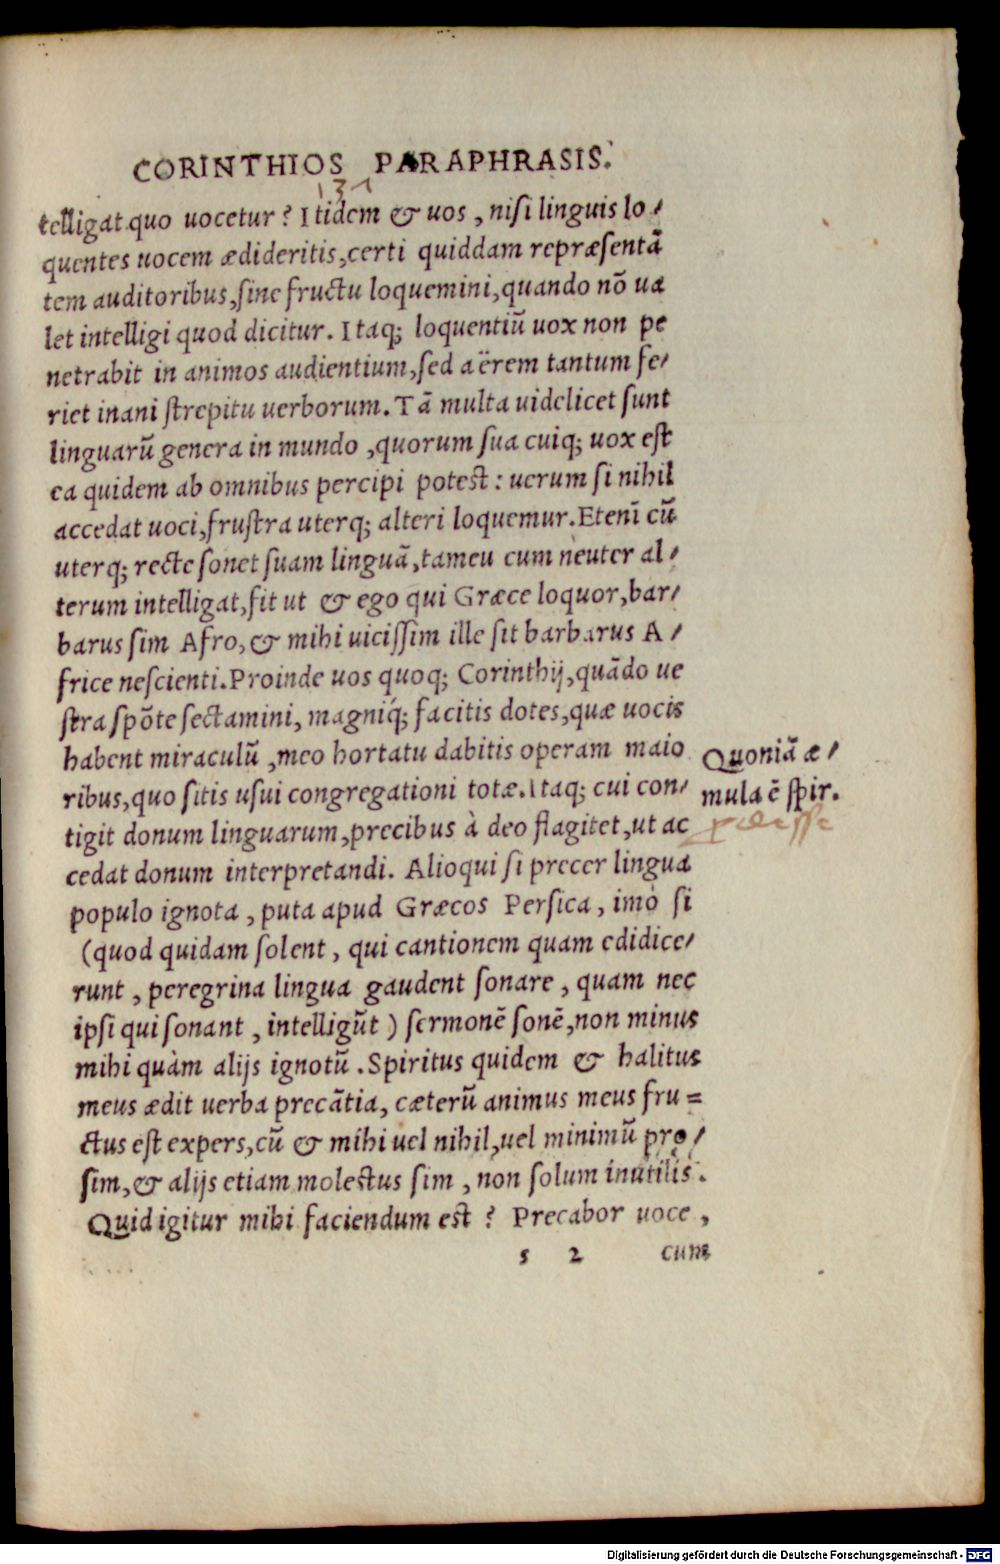 CORINTHIOS PARAPHRASIS.
131
telligat quo uocetur? Itidem & uos, nisi linguis lo⸗
quentes uocem ædideritis, certi quiddam repræsentā
tem auditoribus, sine fructu loquemini, quando nō ua
let intelligi quod dicitur. Itaq; loquentiū uox non pe
netrabit in animos audientium, sed aërem tantum fe⸗
riet inani strepitu uerborum. Tā multa uidelicet sunt
linguarū genera in mundo, quorum sua cuiq; uox est
ea quidem ab omnibus percipi potest: uerum si nihil
accedat uoci, frustra uterq; alteri loquemur. Etenī cū
uterq; recte sonet suam linguā, tameu cum neuter al⸗
terum intelligat, fit ut & ego qui Græce loquor, bar⸗
barus sim Afro, & mihi uicissim ille sit barbarus A⸗
frice nescienti. Proinde uos quoq; Corinthij, quādo ue
stra spōte sectamini, magniq́; facitis dotes, quæ uocis
habent miraculū, meo hortatu dabitis operam maio
ribus, quo sitis usui congregationi totæ. Itaq; cui con⸗
tigit donum linguarum, precibus à deo flagitet, ut ac
cedat donum interpretandi. Alioqui si precer lingua
populo ignota, puta apud Græcos Persica, imò si
(quod quidam solent, qui cantionem quam edidice⸗
runt, peregrina lingua gaudent sonare, quam nec
ipsi qui sonant, intelligūt) sermonē sonē, non minus
mihi quàm alijs ignotū. Spiritus quidem & halitus
meus ædit uerba precātia, cæterū animus meus fru=
ctus est expers, cū & mihi uel nihil, uel minimū pro⸗
sim, & alijs etiam molestus sim, non solum inutilis.
Quid igitur mihi faciendum est? Precabor uoce,
s 2 cum
Quoniā æ⸗
mula ē spir.
Digitalisierung gefördert durch die Deutsche Forschungsgemeinschaft - DFG